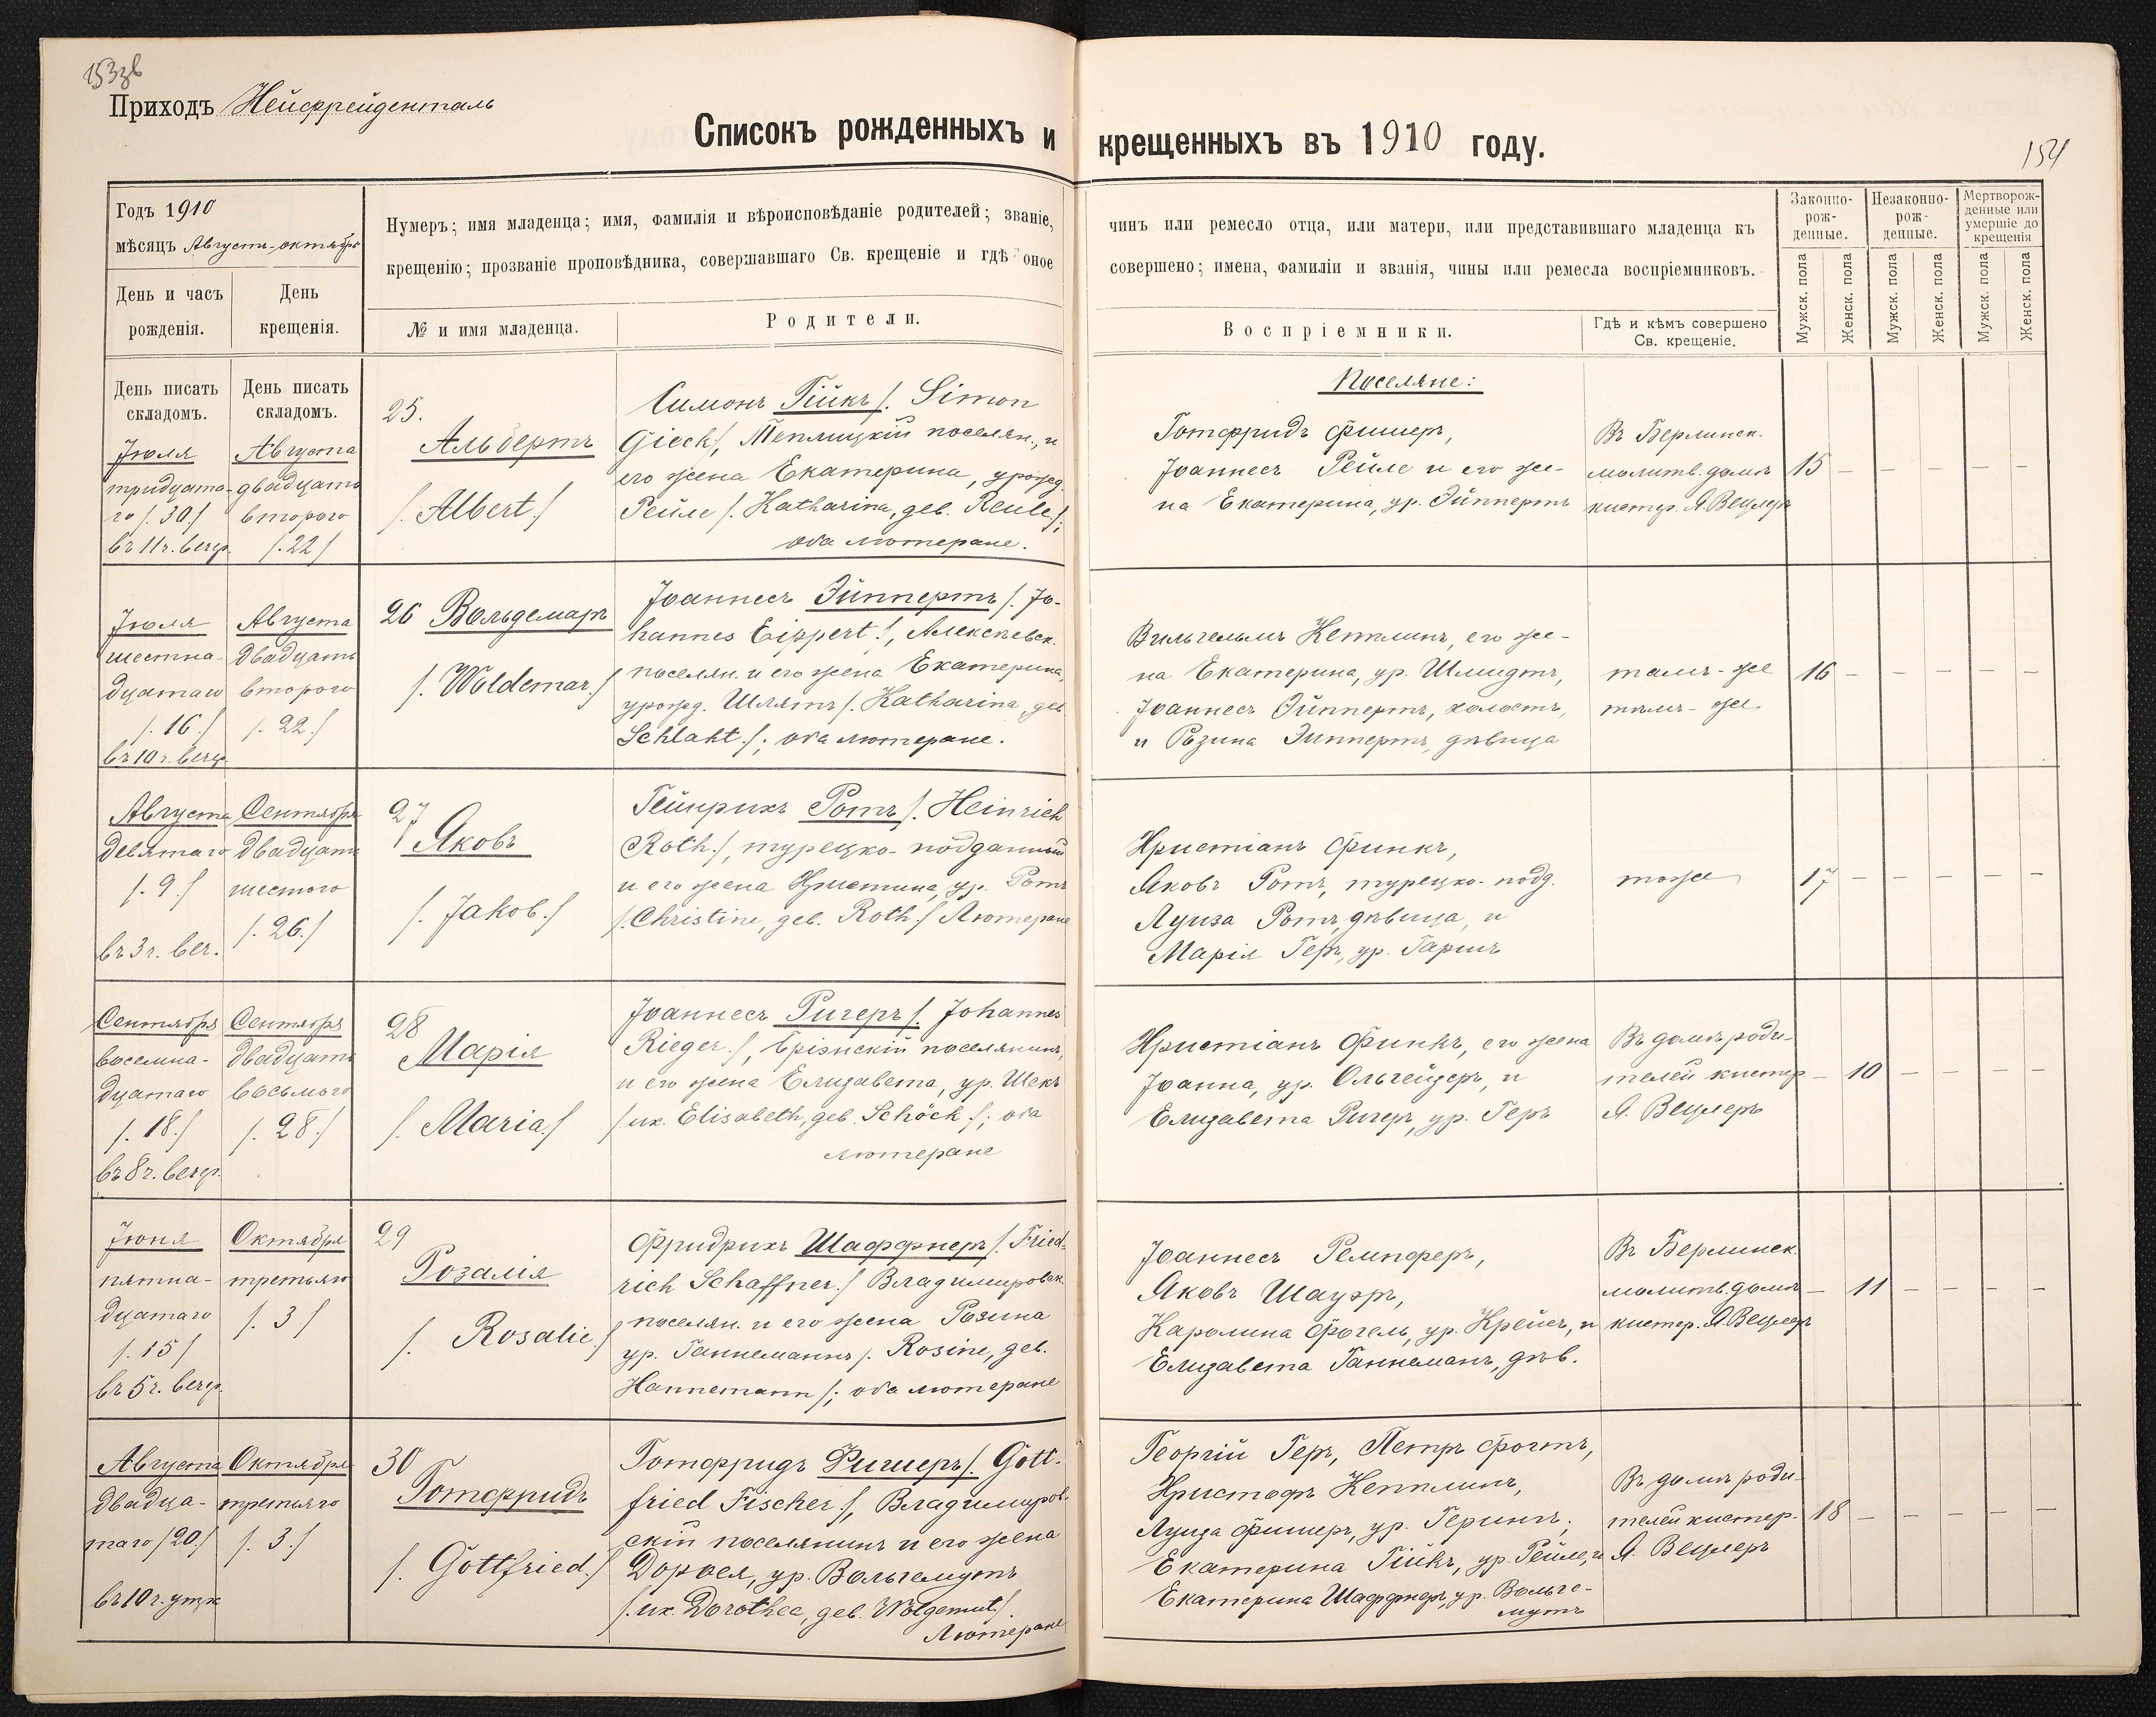 153 зв
Приходъ Нейфрейденталь
Списокъ рожденныхъ и крещенныхъ въ 1910 году.
154
Годъ 1910
мѣсяцъ Августъ-октябрь
День и часъ рожденія.
День крещенія.
Нумеръ; имя младенца; имя, фамилія и вѣроисповѣданіе родителей; званіе, чинъ или ремесло отца, или матери, или представившаго младенца къ
крещенію; прозваніе проповѣдника, совершавшаго Св. крещеніе и гдѣ оное совершено; имена, фамиліи и званія, чины или ремесла воспріемниковъ.
№ и имя младенца.
Родители.
Воспріемники.
Гдѣ и кѣмъ совершено
Св. крещеніе.
Законно-
рож-
денные.
Незаконно-
рож-
денные.
Мертворож-
денные или
умершіе до
крещенія
Мужск. пола
Женск. пола
Мужск. пола
Женск. пола
Мужск. пола
Женск. пола
День писать
складомъ.
День писать
складомъ.
Іюля
тридцата-
го /.30./
въ 11 ч. вечер.
Августа
двадцать
второго
/.22/
25.
Альбертъ
/. Albert./
Симонъ Гійкъ /. Simon
Gieck/, Теплицкій поселян., и
его жена Екатерина, урожд.
Рейле /. Katharina, geb. Reule/;
оба лютеране.
Поселяне:
Готфридъ Фишеръ,
Іоаннесъ Рейле и его же-
на Екатерина, ур. Эйппертъ
Въ Берлинск.
молитв. домѣ
кистер. Я. Вецлеръ
15 — — — — —
Іюля
шестна-
дцатаго
/.16./
въ 10 ч. вечер.
Августа
двадцать
второго
/.22./
26 Вольдемаръ
/. Woldemar./
Іоаннесъ Эйппертъ /. Jo-
hannes Eippert./, Алексѣевск.
поселян. и его жена Екатерина,
урожд. Шлятъ /. Katharina, geb
Schlaht./; оба лютеране.
Вильгельмъ Кепплинъ, его же-
на Екатерина, ур. Шмидтъ,
Іоаннесъ Эйппертъ, холостъ,
и Розина Эйппертъ, дѣвица
тамъ-же
тѣмъ-же
16 — — — — —
Августа
девятаго
/.9./
въ 3 ч. веч.
Сентября
двадцать
шестого
/.26./
27
Яковъ
/. Jakob./
Гейнрихъ Ротъ /. Heinrich
Roth./, турецко-подданный
и его жена Христина, ур. Ротъ
/. Christine, geb. Roth./ Лютеране
Христіанъ Финкъ,
Яковъ Ротъ, турецко-подд.
Луиза Ротъ, дѣвица, и
Марія Геръ, ур.
тоже
17 — — — — —
Сентября
восемна-
дцатаго
/.18./
въ 8 ч. вечер.
Сентября
двадцать
восьмого
/.28./
28
Марія
/. Maria./
Іоаннесъ Ригеръ /. Johannes
Rieger./, поселянинъ,
и его жена Елизавета, ур. Шекъ
/ их. Elisabeth, geb. Schöck./; оба
лютеране
Христіанъ Финкъ, его жена
Іоанна, ур. Ольгейзеръ, и
Елизавета Ригеръ, ур. Геръ
Въ домѣ роди-
телей кистер
Я. Вецлеръ
— 10 — — — —
Іюня
пятна-
дцатаго
/.15/
въ 5 ч. вечер.
Октября
третьяго
/.3/
29
Розалія
/. Rosalie./
Фридрихъ Шаффнеръ /. Fried-
rich Schaffner./ Владимировск.
поселян. и его жена Розина
ур. Ганнеманнъ /. Rosine, geb.
Hannemann/; оба лютеране
Іоаннесъ Ремпферъ,
Яковъ Шауэръ,
Каролина Фогель, ур. Крейсъ, и
Елизавета Ганнеманъ, дѣв.
Въ Берлинск.
молитв. домѣ
кистер. Я. Вецлеръ
— 11 — — — —
Августа
двадца-
таго /20./
въ 10 ч. утра
Октября
третьяго
/.3./
30
Готфридъ
/. Gottfried./
Готфридъ Фишеръ /. Gott-
fried Fischer./, Владимиров-
скій поселянинъ и его жена
Дорѳея, ур. Вольгемутъ
/. их. Dorothea, geb. Wolgemut./.
Лютеране
Георгій Геръ, Петръ Фогтъ,
Христофъ Кепплинъ,
Луиза Фишеръ, ур. Герингъ;
Екатерина Гійкъ, ур. Рейле, и
Екатерина Шаффнеръ, ур. Вольге-
мутъ
Въ домѣ роди-
телей кистер.
Я. Вецлеръ
18 — — — — —